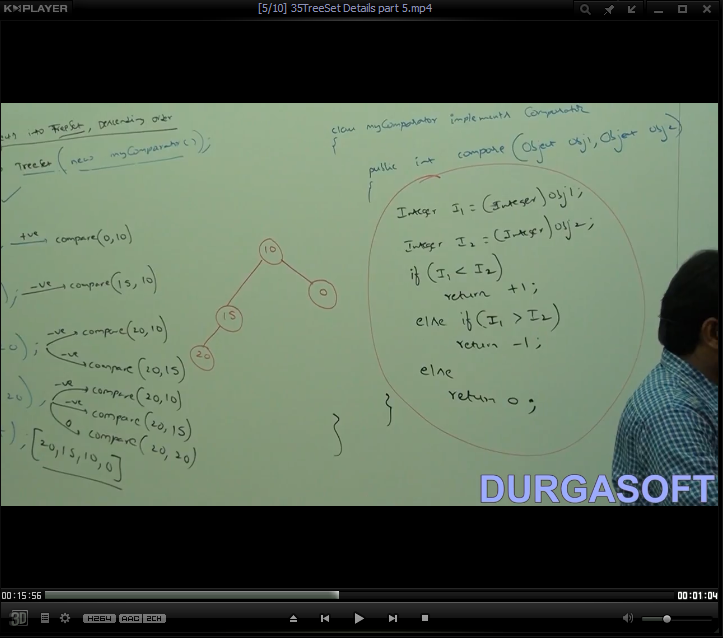 K-MPLAYER
[5/10] 35TreeSet Details part 5.mp4
into TreeSet, Descending order
TreeSet (new myComparator());
+ve compare(0,10)
); -ve compare(15, 10)
); -ve compare(20,10)
-ve compare (20,15)
20), -ve compare(20,10)
-ve compare (20,15)
0 compare (20, 20)
); [20,15,10,0]
10
0
15
20
class myComparator implements Comparator
{
public int compare (Object obj1, Object obj2)
{
Integer I1 = (Integer) obj1;
Integer I2 = (Integer) obj2;
if (I1 < I2)
return +1;
else if (I1 > I2)
return -1;
else
return 0;
}
}
DURGASOFT
00:15:56
00:01:04
3D
H264 AAC 2CH